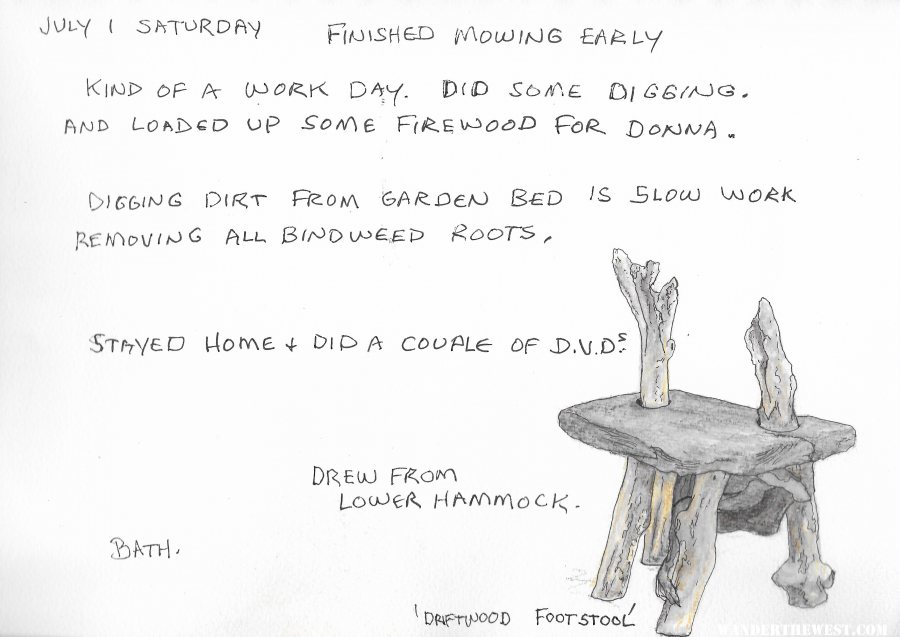 JULY 1 SATURDAY FINISHED MOWING EARLY
KIND OF A WORK DAY. DID SOME DIGGING.
AND LOADED UP SOME FIREWOOD FOR DONNA.
DIGGING DIRT FROM GARDEN BED IS SLOW WORK
REMOVING ALL BINDWEED ROOTS.
STAYED HOME + DID A COUPLE OF D.V.Ds.
DREW FROM
LOWER HAMMOCK.
BATH.
'DRIFTWOOD FOOTSTOOL'
WANDERTHEWEST.COM